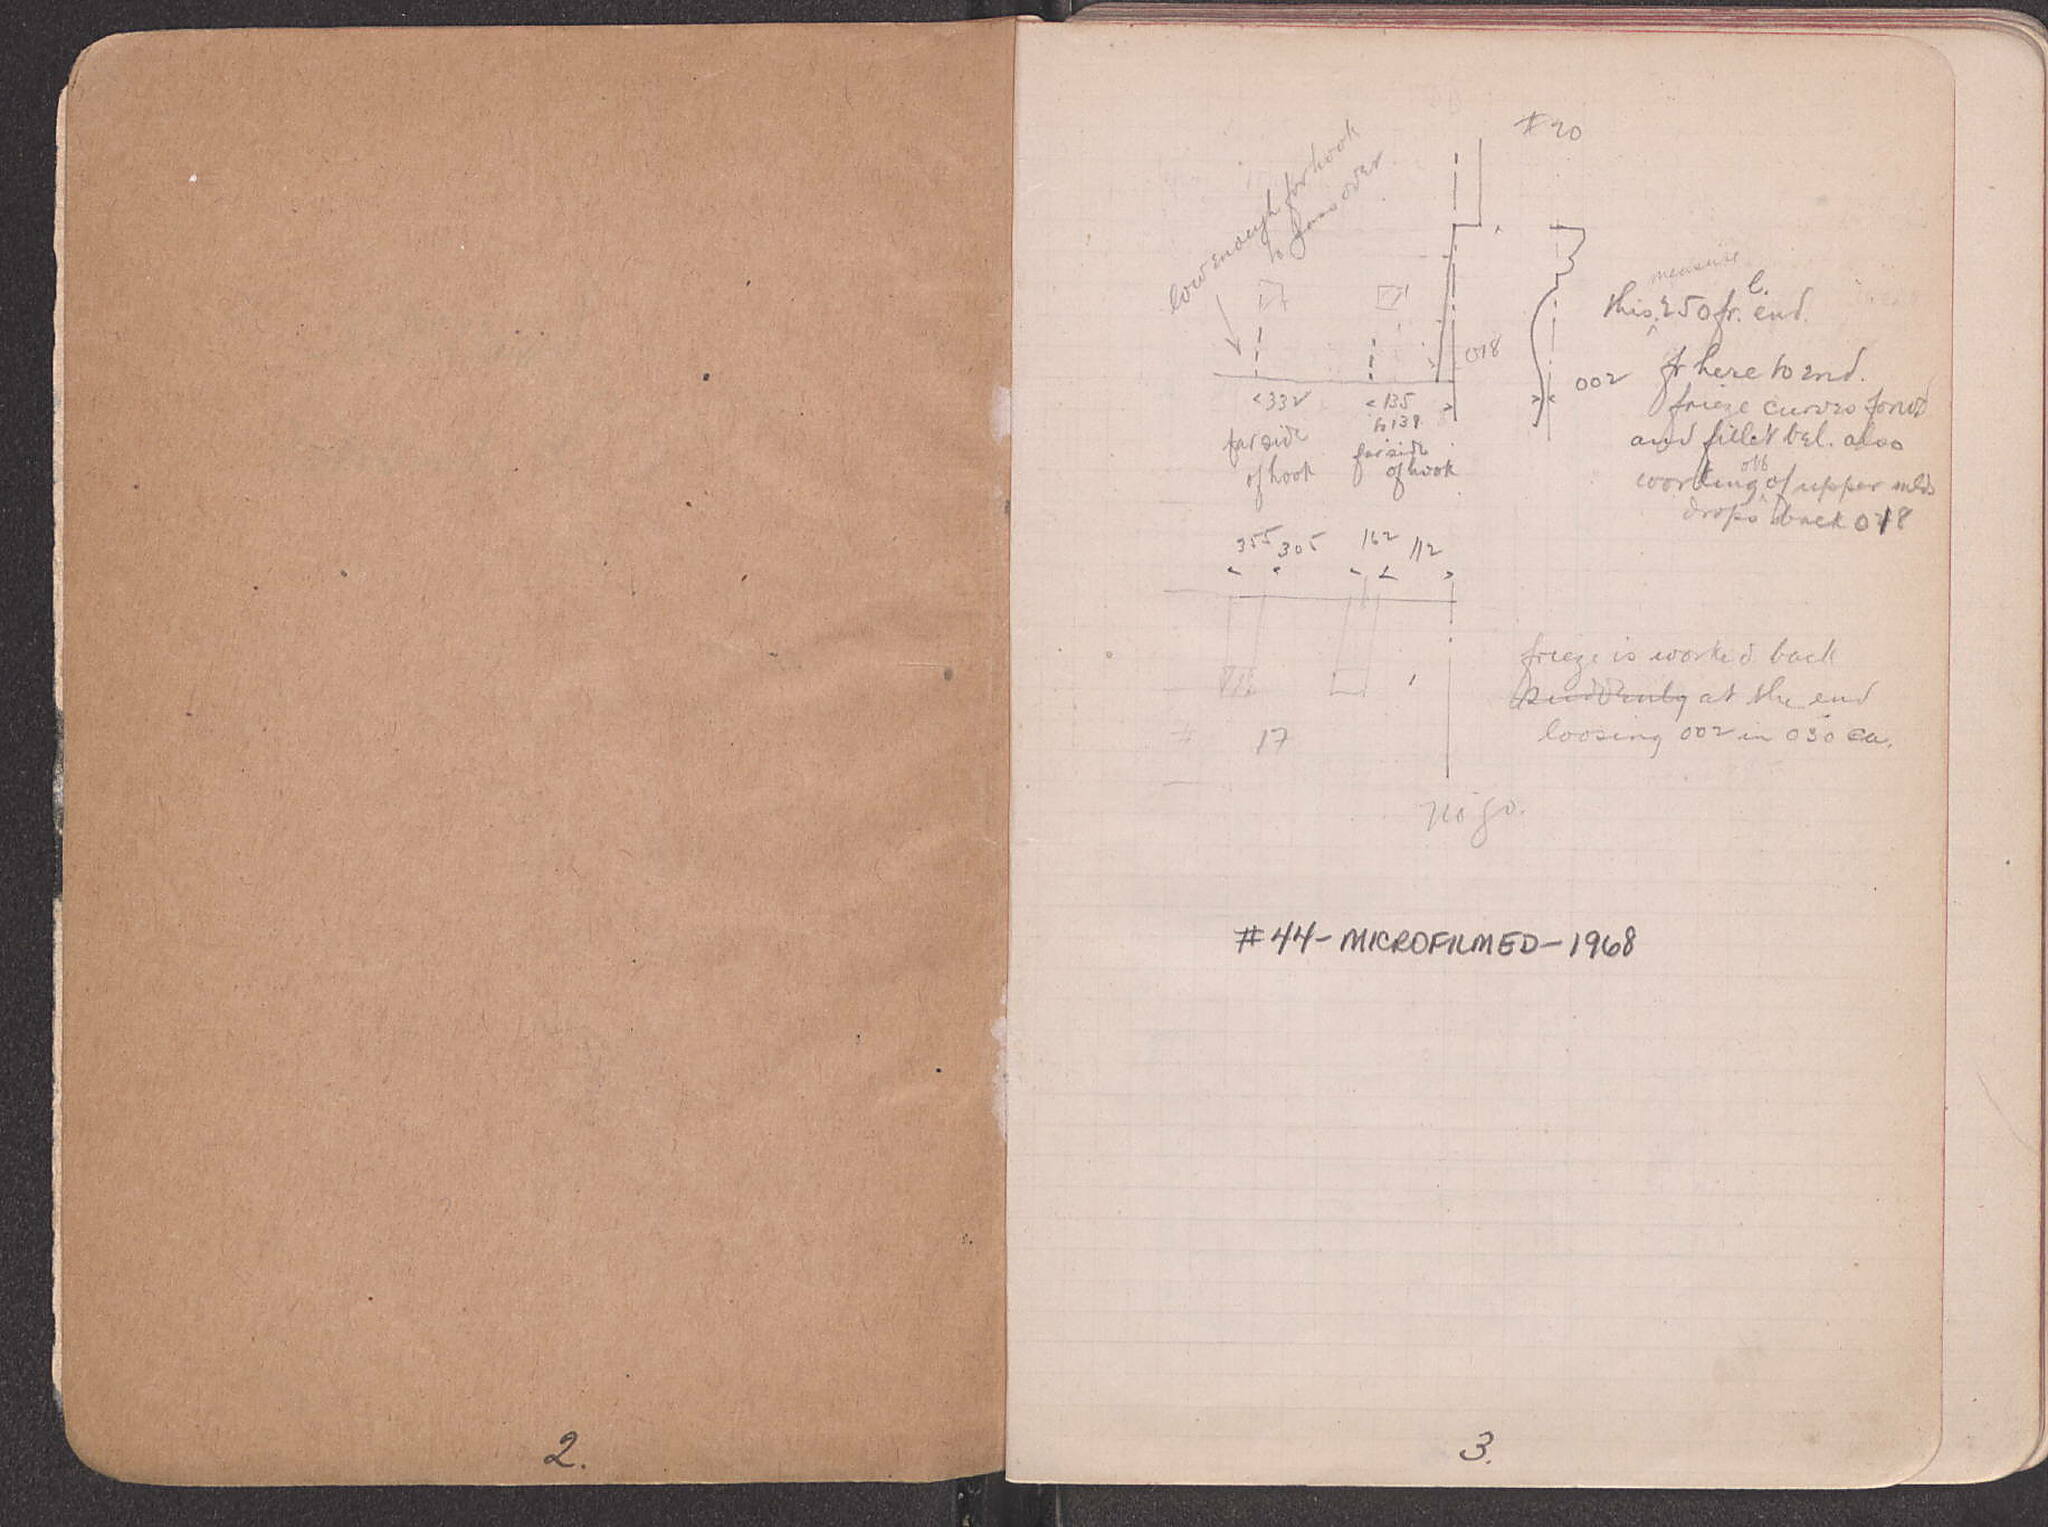 2.
# 20
low enough for hook
to pass over
measure
this 250 fr. l. end.
018
002
fr here to end.
frieze curves forwd
and fillet bel. also
working off of upper mlds
drops back 018
<332
far side
of hook
<135
to 138
far side
of hook
355 305 162 112
frieze is worked back
suddenly at the end
loosing 002 in 030 ca.
# 17
no go.
#44-MICROFILMED-1968
3.